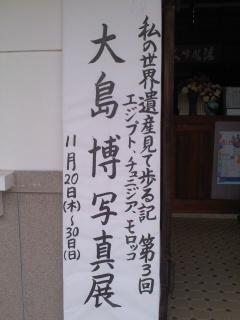 私の世界遺産見て歩る記 第3回
エジプト、チュニジア、モロッコ
大島博写真展
11月20日(木)~30日(日)